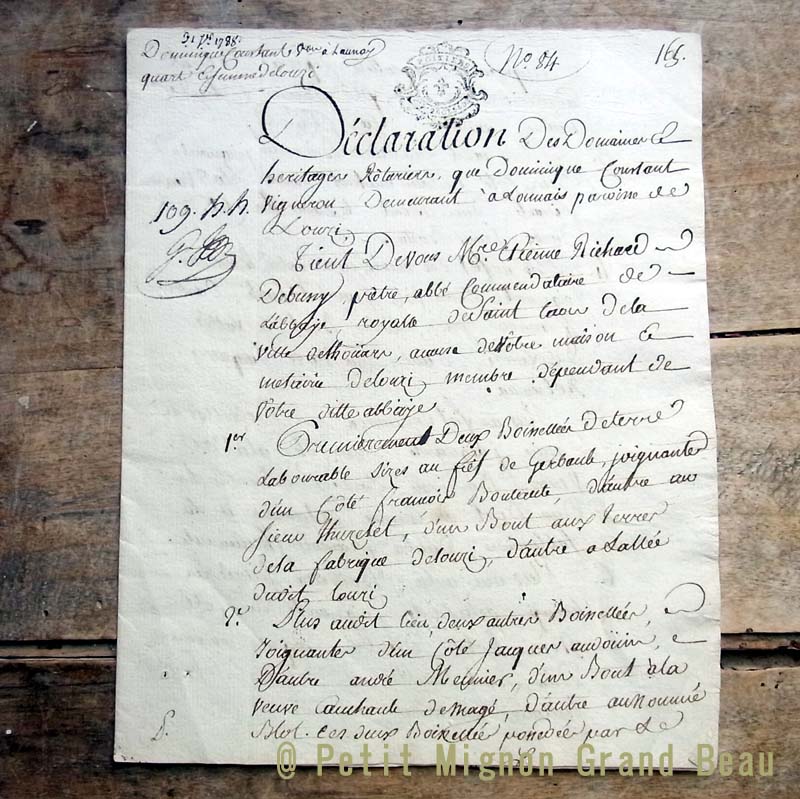 31 1788.
Dominique Constant a Launay
quart
No. 84
165.
Déclaration Des Domaines &
heritages Rôturiers, que Dominique Constant
Vigneron Demeurant a Lonnais paroisse de
Louri
109. h. h.
Tient De Vous Mre. Etienne Richard
Debuny prêtre, abbé Commendataire de
L'abbaye, royalle de Saint Laon de la
Ville de thoüars, acause de Vôtre maison &
metairie de louri, membre dépendant de
Vôtre ditte abbaye
1er Premierement Deux Boisellées de terre
Labourable sizes au fief de Gerbault, joignantes
d'un Côté francois, d'autre au
sieur Thuretet, d'un Bout aux terres
de la fabrique de louri, d'autre a Lallée
dudit louri
2e. Plus audit lieu, deux autres Boisellées,
Joignantes d'un Côté Jacques audoüin,
D'autre andré Meunier, d'un Bout a la
Veuve de magé, d'autre au Nommé
Blot. Ces deux Boisellée possedée par Le
@ Petit Mignon Grand Beau